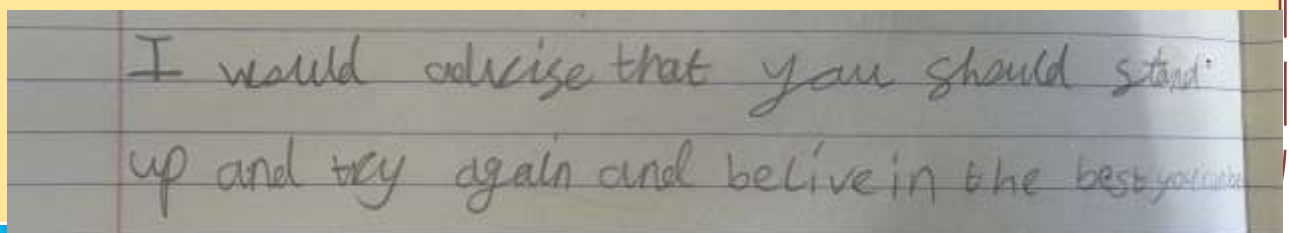 I would advise that you should stand
up and try again and belive in the best you